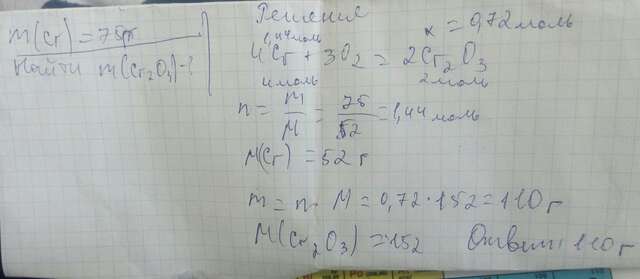 m(Cr) = 75г
Найти m(Cr₂O₃)-?
Решение
1,44 моль x = 0,72 моль
4Cr + 3O₂ = 2Cr₂O₃
4 моль 2 моль
n = m/M = 75/52 = 1,44 моль
M(Cr) = 52 г
m = n · M = 0,72 · 152 = 110 г
M(Cr₂O₃) = 152 Ответ: 110 г